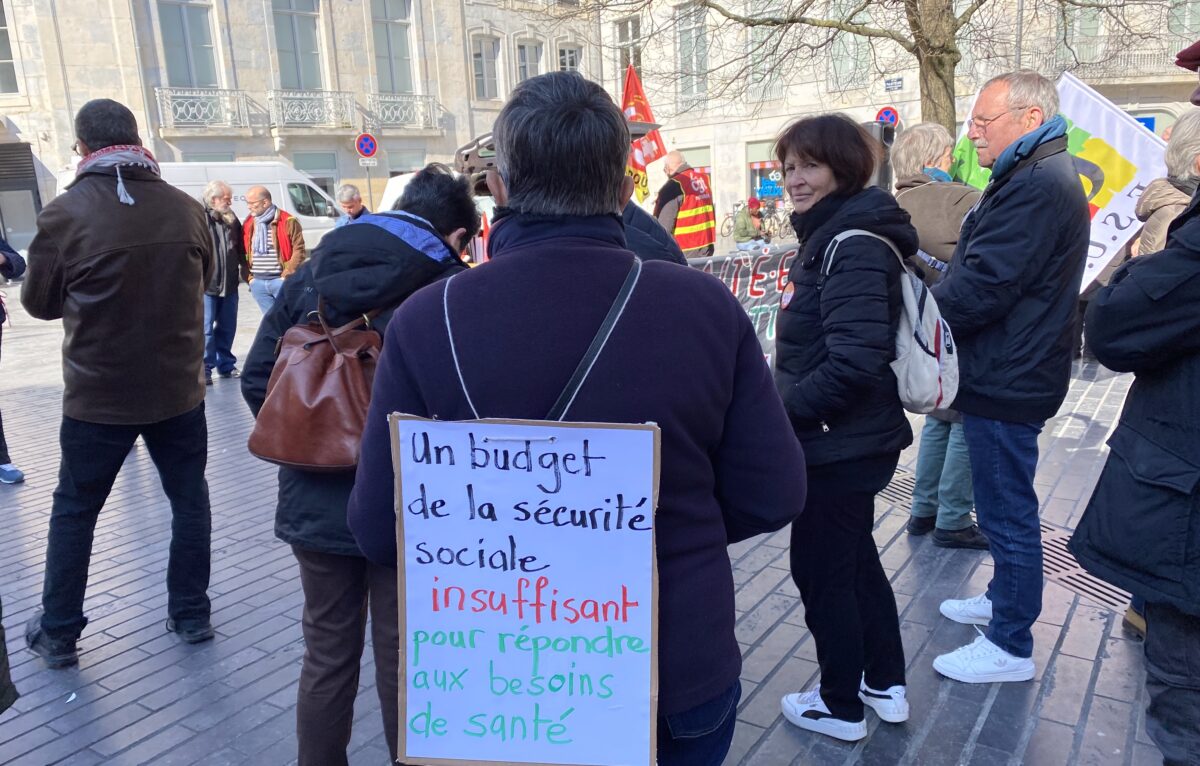 Un budget
de la sécurité
sociale
insuffisant
pour répondre
aux besoins
de santé
cgt
F.S.U.